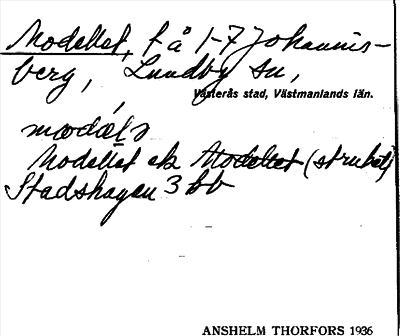 Modellet, få 1-7 Johannis-
berg, Lundby sn,
Västerås stad, Västmanlands län.
mɷdäls
Modellet ek Modellet (struket)
Stadshagen 3 bb
ANSHELM THORFORS 1936